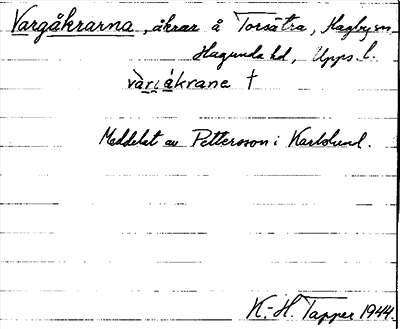 Vargåkrarna, åkrar å Torsätra, Hagby sn,
Hagunda hd, Upps. l.
vàrjåkrane †
Meddelat av Pettersson i Karlslund.
K.-H. Tapper 1944.